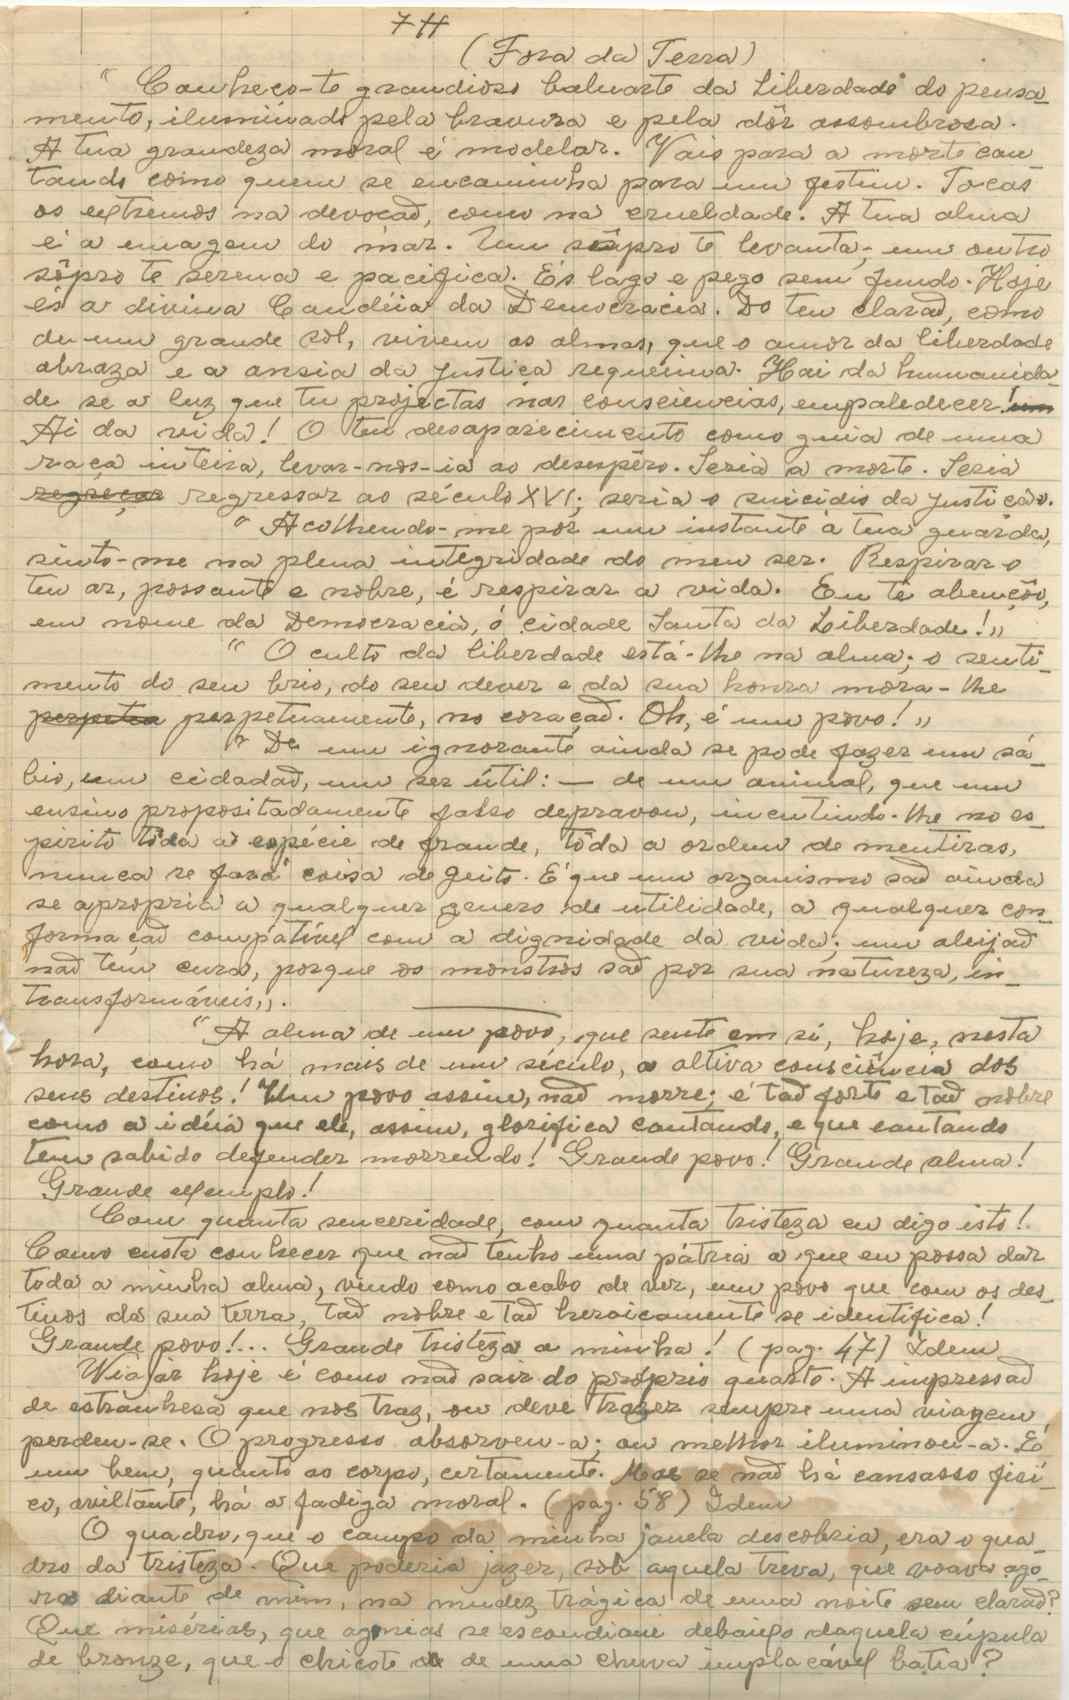 7H
(Fora da Terra)
" Conheço-te grandioso baluarte da Liberdade do pensa-
mento, iluminado pela bravura e pela dôr assombrosa.
A tua grandeza moral é modelar. Vais para a morte can-
tando como quem se encaminha para um festim. Tocas
os extremos na devoção, como na crueldade. A tua alma
é a imagem do mar. Um sôpro te levanta; um outro
sôpro te serena e pacifica. És lago e pego sem fundo. Hoje
és a divina Candéia da Democracia. Do teu clarão, como
de um grande sol, vivem as almas, que o amor da liberdade
abraza e a ansia da justiça requeima. Hai da humanida-
de se a luz que tu projectas nas consciencias, empaledecer! um
Ai da vida! O teu desaparecimento como guia de uma
raça inteira, levar-nos-ia ao desespêro. Seria a morte. Seria
regreçar regressar ao século XVI; seria o suicídio da justiça».
" Acolhendo-me por um instante à tua guarda,
sinto-me na plena integridade do meu ser. Respirar o
teu ar, possante e nobre, é respirar a vida. Eu te abençôo,
em nome da Democracia, ó cidade Santa da Liberdade!"
" O culto da liberdade está-lhe na alma; o senti-
mento do seu brio, do seu dever e da sua honra mora-lhe
perpetua perpetuamente, no coração. Oh, é um povo!"
" De um ignorante ainda se pode fazer um sá-
bio, um cidadão, um ser útil: — de um animal, que um
ensino propositadamente falso depravou, incutindo-lhe no es-
pirito tôda a espécie de fraude, tôda a ordem de mentiras,
nunca se fará coisa de geito. É que um organismo são ainda
se apropria a qualquer genero de utilidade, a qualquer con-
formação compatível com a dignidade da vida; um aleijão
não tem cura, porque os monstros são por sua natureza, in-
transformáveis".
" A alma de um povo, que sente em si, hoje, nesta
hora, como há mais de um século, a altiva consciência dos
seus destinos! Um povo assim, não morre; é tão forte e tão nobre
como a idéia que ele, assim, glorifica cantando, e que cantando
tem sabido defender morrendo! Grande povo! Grande alma!
Grande exemplo!
Com quanta senceridade, com quanta tristeza eu digo isto!
Como custa conhecer que não tenho uma pátria a que eu possa dar
toda a minha alma, vendo como acabo de ver, um povo que com os des-
tinos da sua terra, tão nobre e tão heroicamente se identifica!
Grande povo!... Grande tristeza a minha! (pag. 47) Idem
Viajar hoje é como não sair do próprio quarto. A impressão
de estranhesa que nos traz, ou deve trazer sempre uma viagem,
perdeu-se. O progresso absorveu-a; ou melhor iluminou-a. É
um bem, quanto ao corpo, certamente. Mas se não há cansasso fisi-
co, aviltante, há a fadiga moral. (pag. 58) Idem
O quadro, que o campo da minha janela descobria, era o qua-
dro da tristeza. Que poderia jazer, sob aquela treva, que voava ago-
ra diante de mim, na mudez trágica de uma noite sem clarão?
Que misérias, que agonias se escondiam debaixo daquela cúpula
de bronze, que o chicote de uma chuva implacável batia?